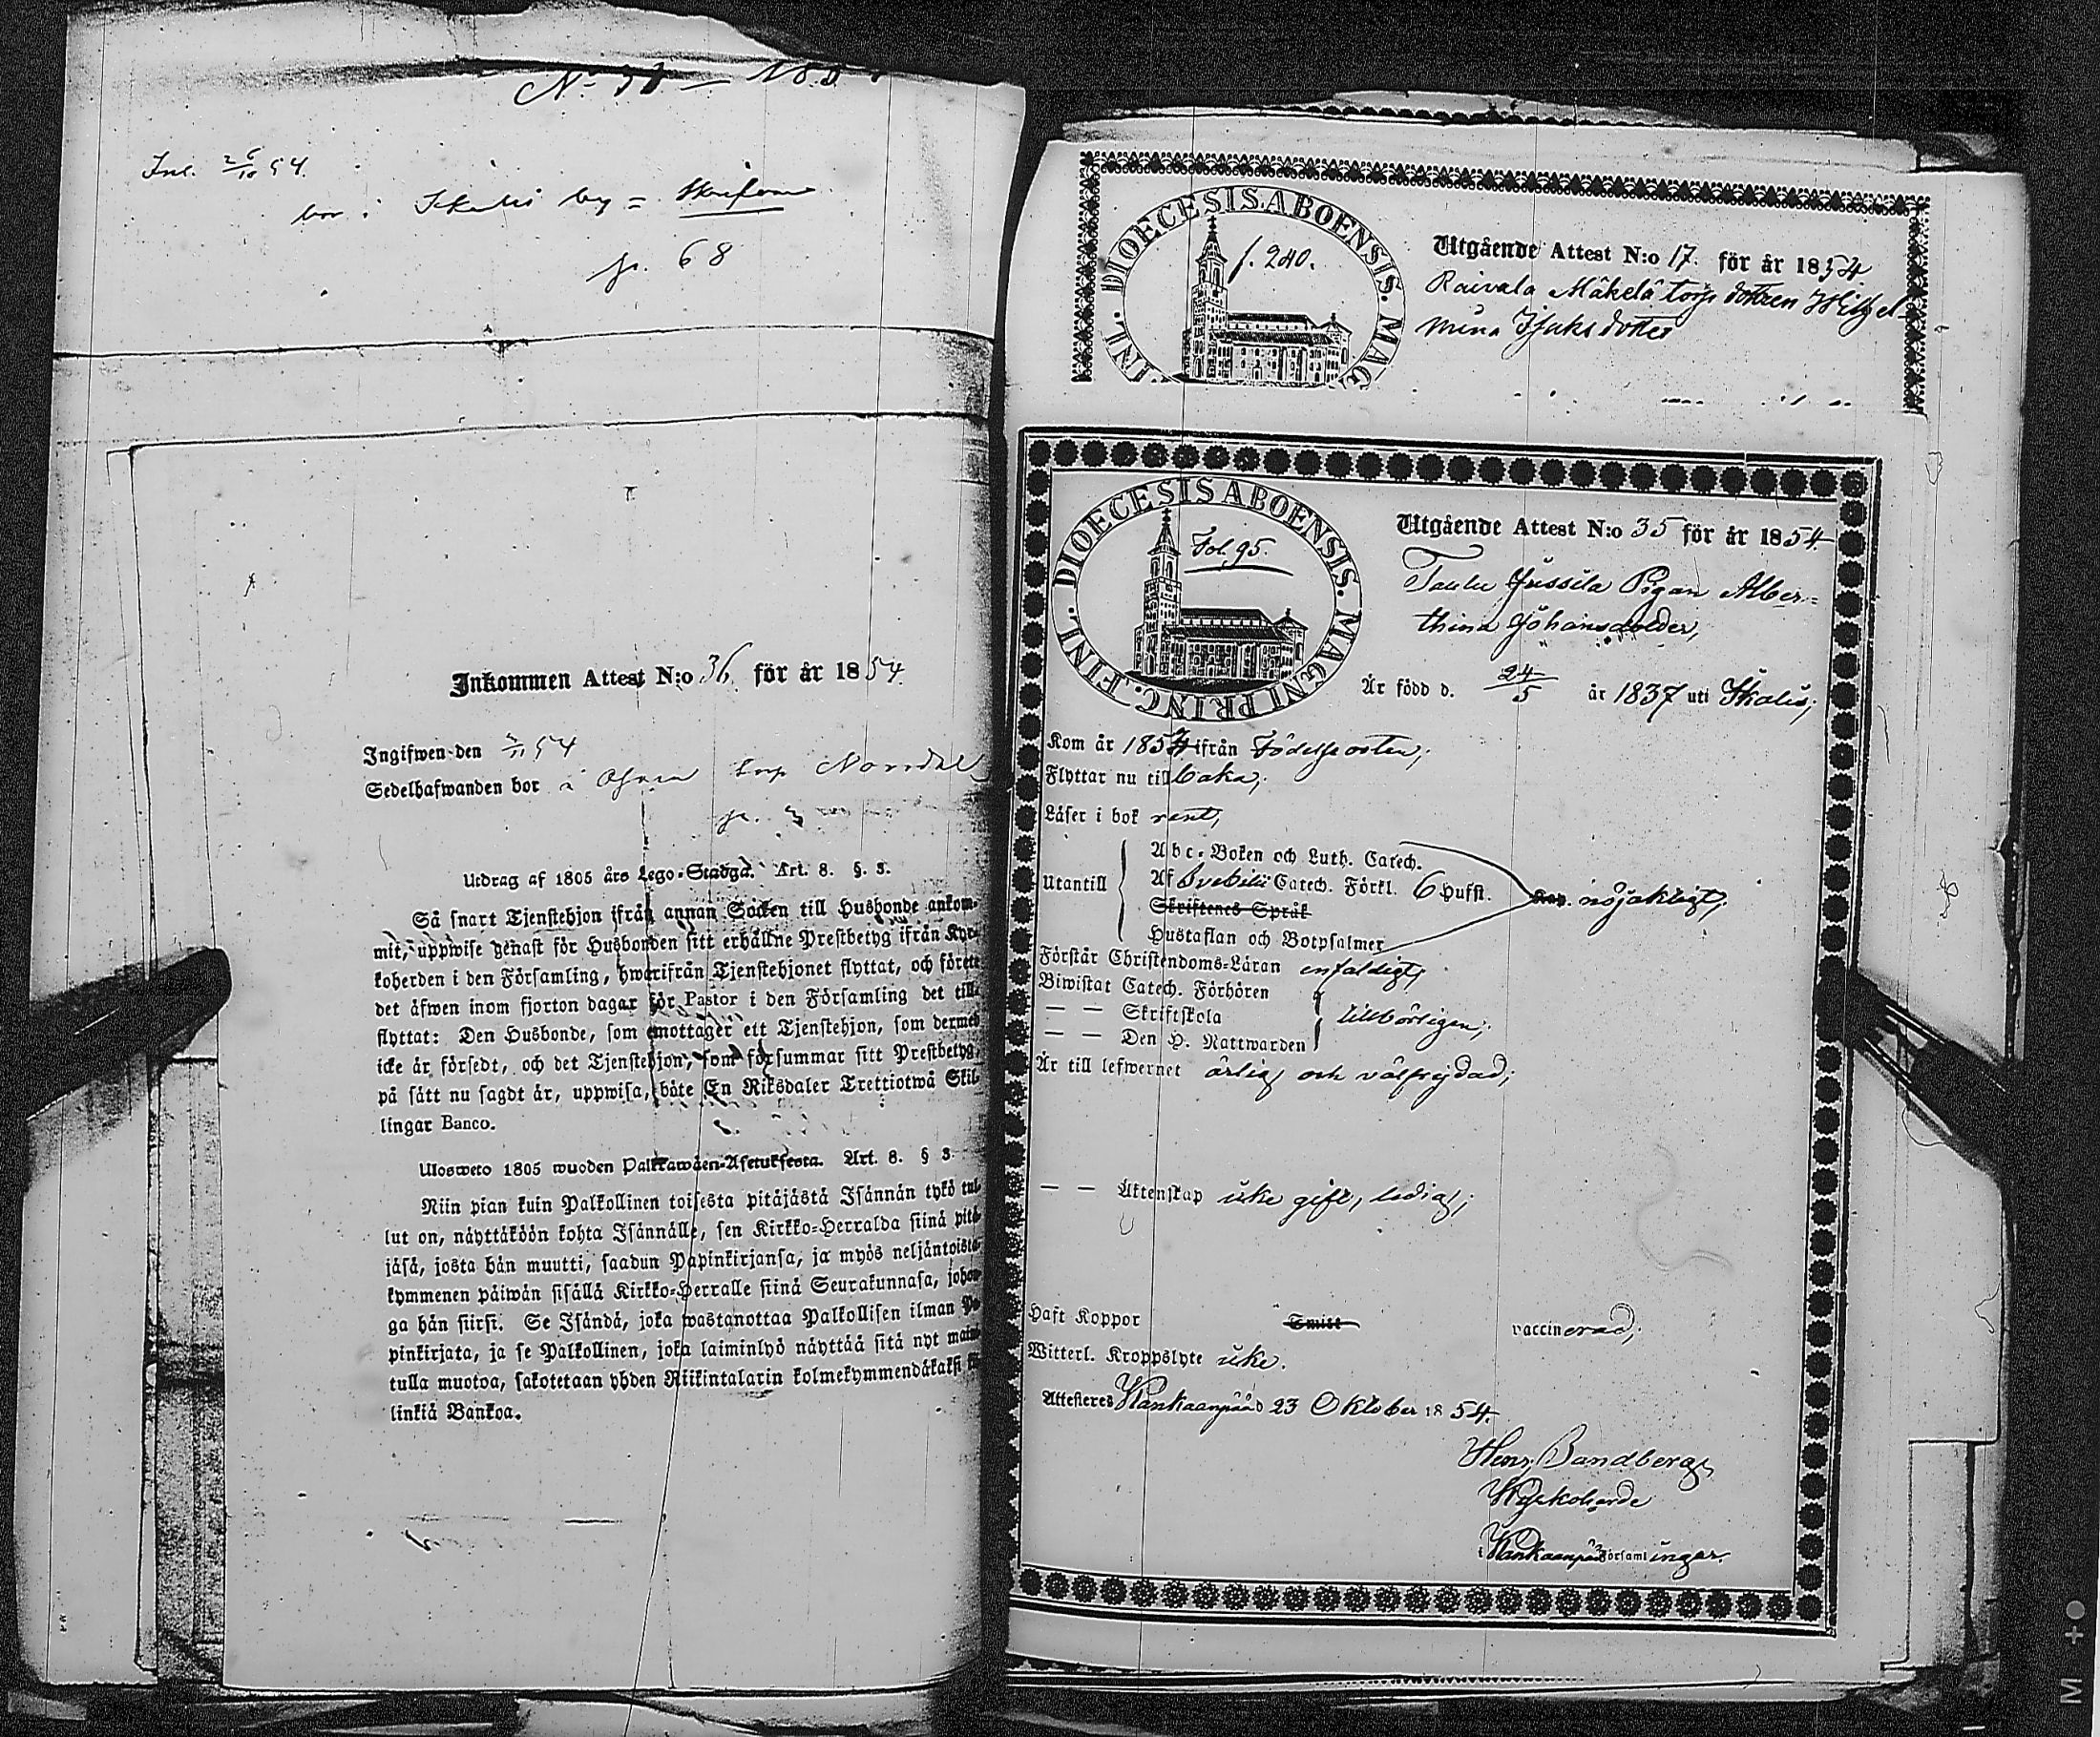 Ink. 26/10 54.
bor i Ikalis by =
p. 68
Inkommen Attest N:o 36 för år 1854.
Ingifwen den /11 54
Sedelhafwanden bor i
Utdrag af 1805 års Lego-Stadga. Art. 8. §. 3.
Så snart Tjenstehjon ifrån annan Socken till Husbonde ankom-
mit, uppwise genast för Husbonden sitt erhållne Prestbetyg ifrån Kyr-
koherden i den Församling, hwarifrån Tjenstehjonet flyttat, och förete
det äfwen inom fjorton dagar för Pastor i den Församling det till-
flyttat: Den Husbonde, som emottager ett Tjenstehjon, som dermed
icke är försedt, och det Tjenstehjon, som försummar sitt Prestbetyg,
på sätt nu sagdt är, uppwisa, böte En Riksdaler Trettiotwå Skil-
lingar Banco.
Ulosweto 1805 wuoden Palkkawäen-Asetuksesta. Art. 8. § 3.
Niin pian kuin Palkollinen toisesta pitäjästä Isännän tykö tul-
lut on, näyttäköön kohta Isännälle, sen Kirkko-Herralda siinä pitä-
jäsä, josta hän muutti, saadun Papinkirjansa, ja myös neljäntoista-
kymmenen päiwän sisällä Kirkko-Herralle siinä Seurakunnasa, johon-
ga hän siirsi. Se Isändä, joka wastanottaa Palkollisen ilman Pa-
pinkirjata, ja se Palkollinen, joka laiminlyö näyttää sitä nyt mainu-
tulla muotoa, sakotetaan yhden Riikintalarin kolmekymmendäkaksi kil-
linkiä Bankoa.
DIOECESIS ABOENSIS. MAG FINL.
f. 240.
Utgående Attest N:o 17. för år 1854
Raivala Mäkelä torp dottren Wilhel-
mina Isaksdotter
DIOECESIS ABOENSIS. MAGNI PRINC. FINL.
Fol. 95.
Utgående Attest N:o 35 för år 1854.
Taulu Jussila Pigan Alber=
thina Johansdotter,
Är född d. 24/5 år 1837 uti Ikalis;
Kom år 1854 ifrån Födelseorten;
Flyttar nu tillbaka;
Läser i bok rent,
Abc-Boken och Luth. Catech.
Utantill Af Svebilii Catech. Förkl. 6 Hufst. nöjaktigt;
Skriftenes Språk
Hustaflan och Botpsalmer
Förstår Christendoms-Läran enfaldigt;
Biwistat Catech. Förhören
— — Skriftskola tillbörligen;
— — Den H. Nattwarden
Är till lefwernet ärlig och välfrejdad;
— — Äktenskap icke gift, ledig;
Haft Koppor Smitt vaccinerad;
Witterl. Kroppslyte icke.
Attesteres Kankaanpää d 23 Oktober 1854.
Henr. Bandberg
Kyrkoherde
i Kankaanpää Församlingar.
M